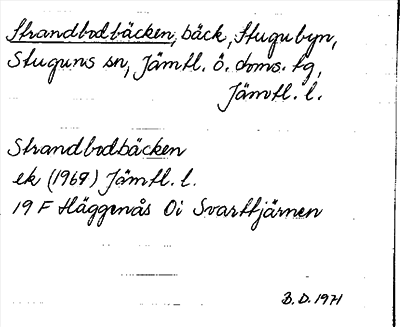 Strandbodbäcken, bäck, Stugubyn,
Stuguns sn, Jämtl. ö. doms. tg,
Jämtl. l.
Strandbodbäcken
ek (1967) Jämtl. l.
19 F Häggenås 0i Svarttjärnen
B.D. 1971